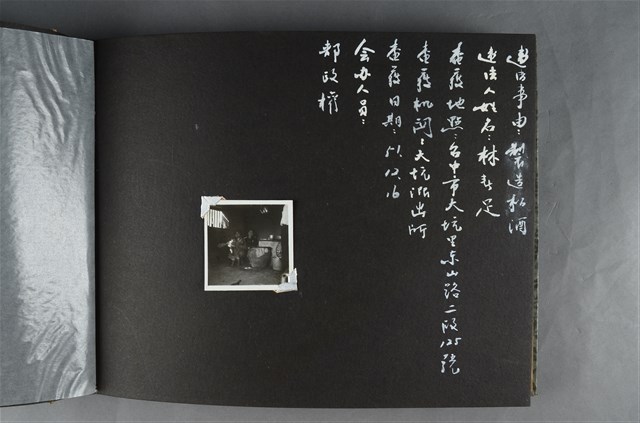 違法事由：製造私酒
違法人姓名：林春足
查獲地點：台中市大坑里東山路二段125號
查獲机関：大坑派出所
查獲日期：51.12.16
会办人員：
郝政權